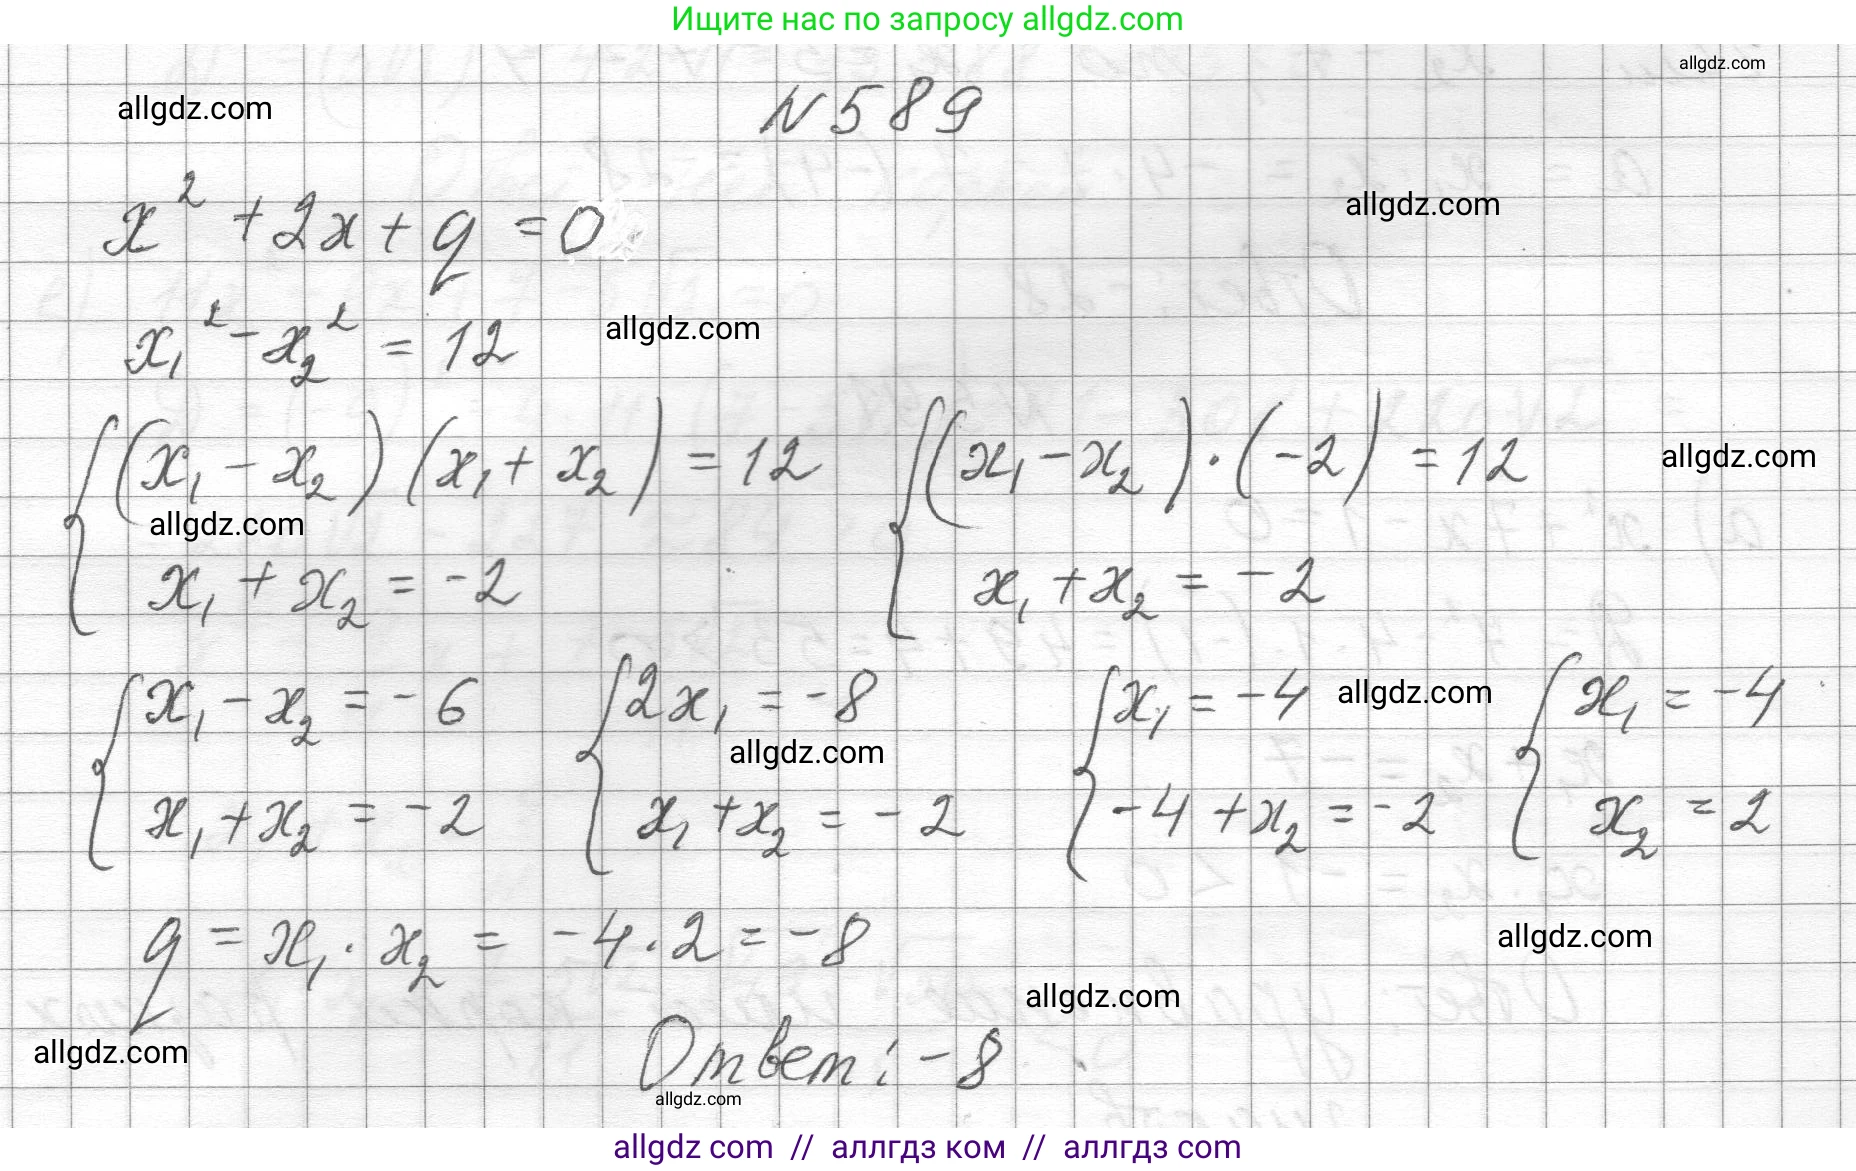 Ищите нас по запросу allgdz.com
allgdz.com
allgdz.com
N 589
x² + 2x + q = 0
allgdz.com
x₁² - x₂² = 12
allgdz.com
{ (x₁ - x₂)(x₁ + x₂) = 12 { (x₁ - x₂) · (-2) = 12
allgdz.com
allgdz.com
x₁ + x₂ = -2 x₁ + x₂ = -2
{ x₁ - x₂ = -6 { 2x₁ = -8 { x₁ = -4 allgdz.com { x₁ = -4
allgdz.com
x₁ + x₂ = -2 x₁ + x₂ = -2 -4 + x₂ = -2 x₂ = 2
q = x₁ · x₂ = -4 · 2 = -8
allgdz.com
allgdz.com
allgdz.com
Ответ: -8
allgdz.com
allgdz com // аллгдз ком // аллгдз com